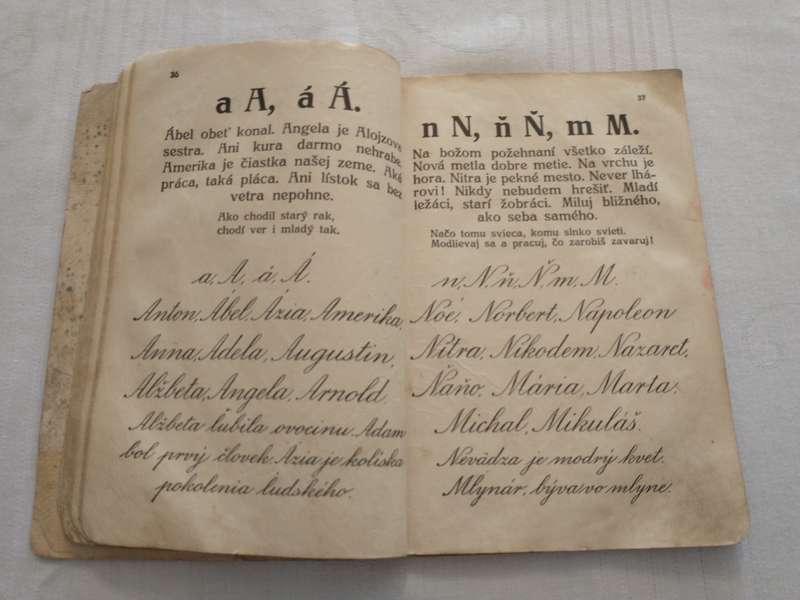 36
a A, á Á.
Ábel obeť konal. Angela je Alojzova
sestra. Ani kura darmo nehrabe.
Amerika je čiastka našej zeme. Aká
práca, taká pláca. Ani lístok sa bez
vetra nepohne.
Ako chodil starý rak,
chodí ver i mladý tak.
a, A, á, Á.
Anton, Ábel, Ázia, Amerika,
Anna, Adela, Augustin,
Alžbeta, Angela, Arnold.
Alžbeta ľúbila ovocinu. Adam
bol prvý človek. Ázia je kolíska
pokolenia ľudského.
37
n N, ň Ň, m M.
Na božom požehnaní všetko záleží.
Nová metla dobre metie. Na vrchu je
hora. Nitra je pekné mesto. Never lhá-
rovi! Nikdy nebudem hrešiť. Mladí
ležáci, starí žobráci. Miluj bližného,
ako seba samého.
Načo tomu svieca, komu slnko svieti.
Modlievaj sa a pracuj, čo zarobíš zavaruj!
n, N, ň, Ň, m, M.
Nóe, Norbert, Napoleon
Nitra, Nikodem, Nazaret,
Ňaňo, Mária, Marta,
Michal, Mikuláš.
Nevädza je modrý kvet.
Mlynár, býva vo mlyne.